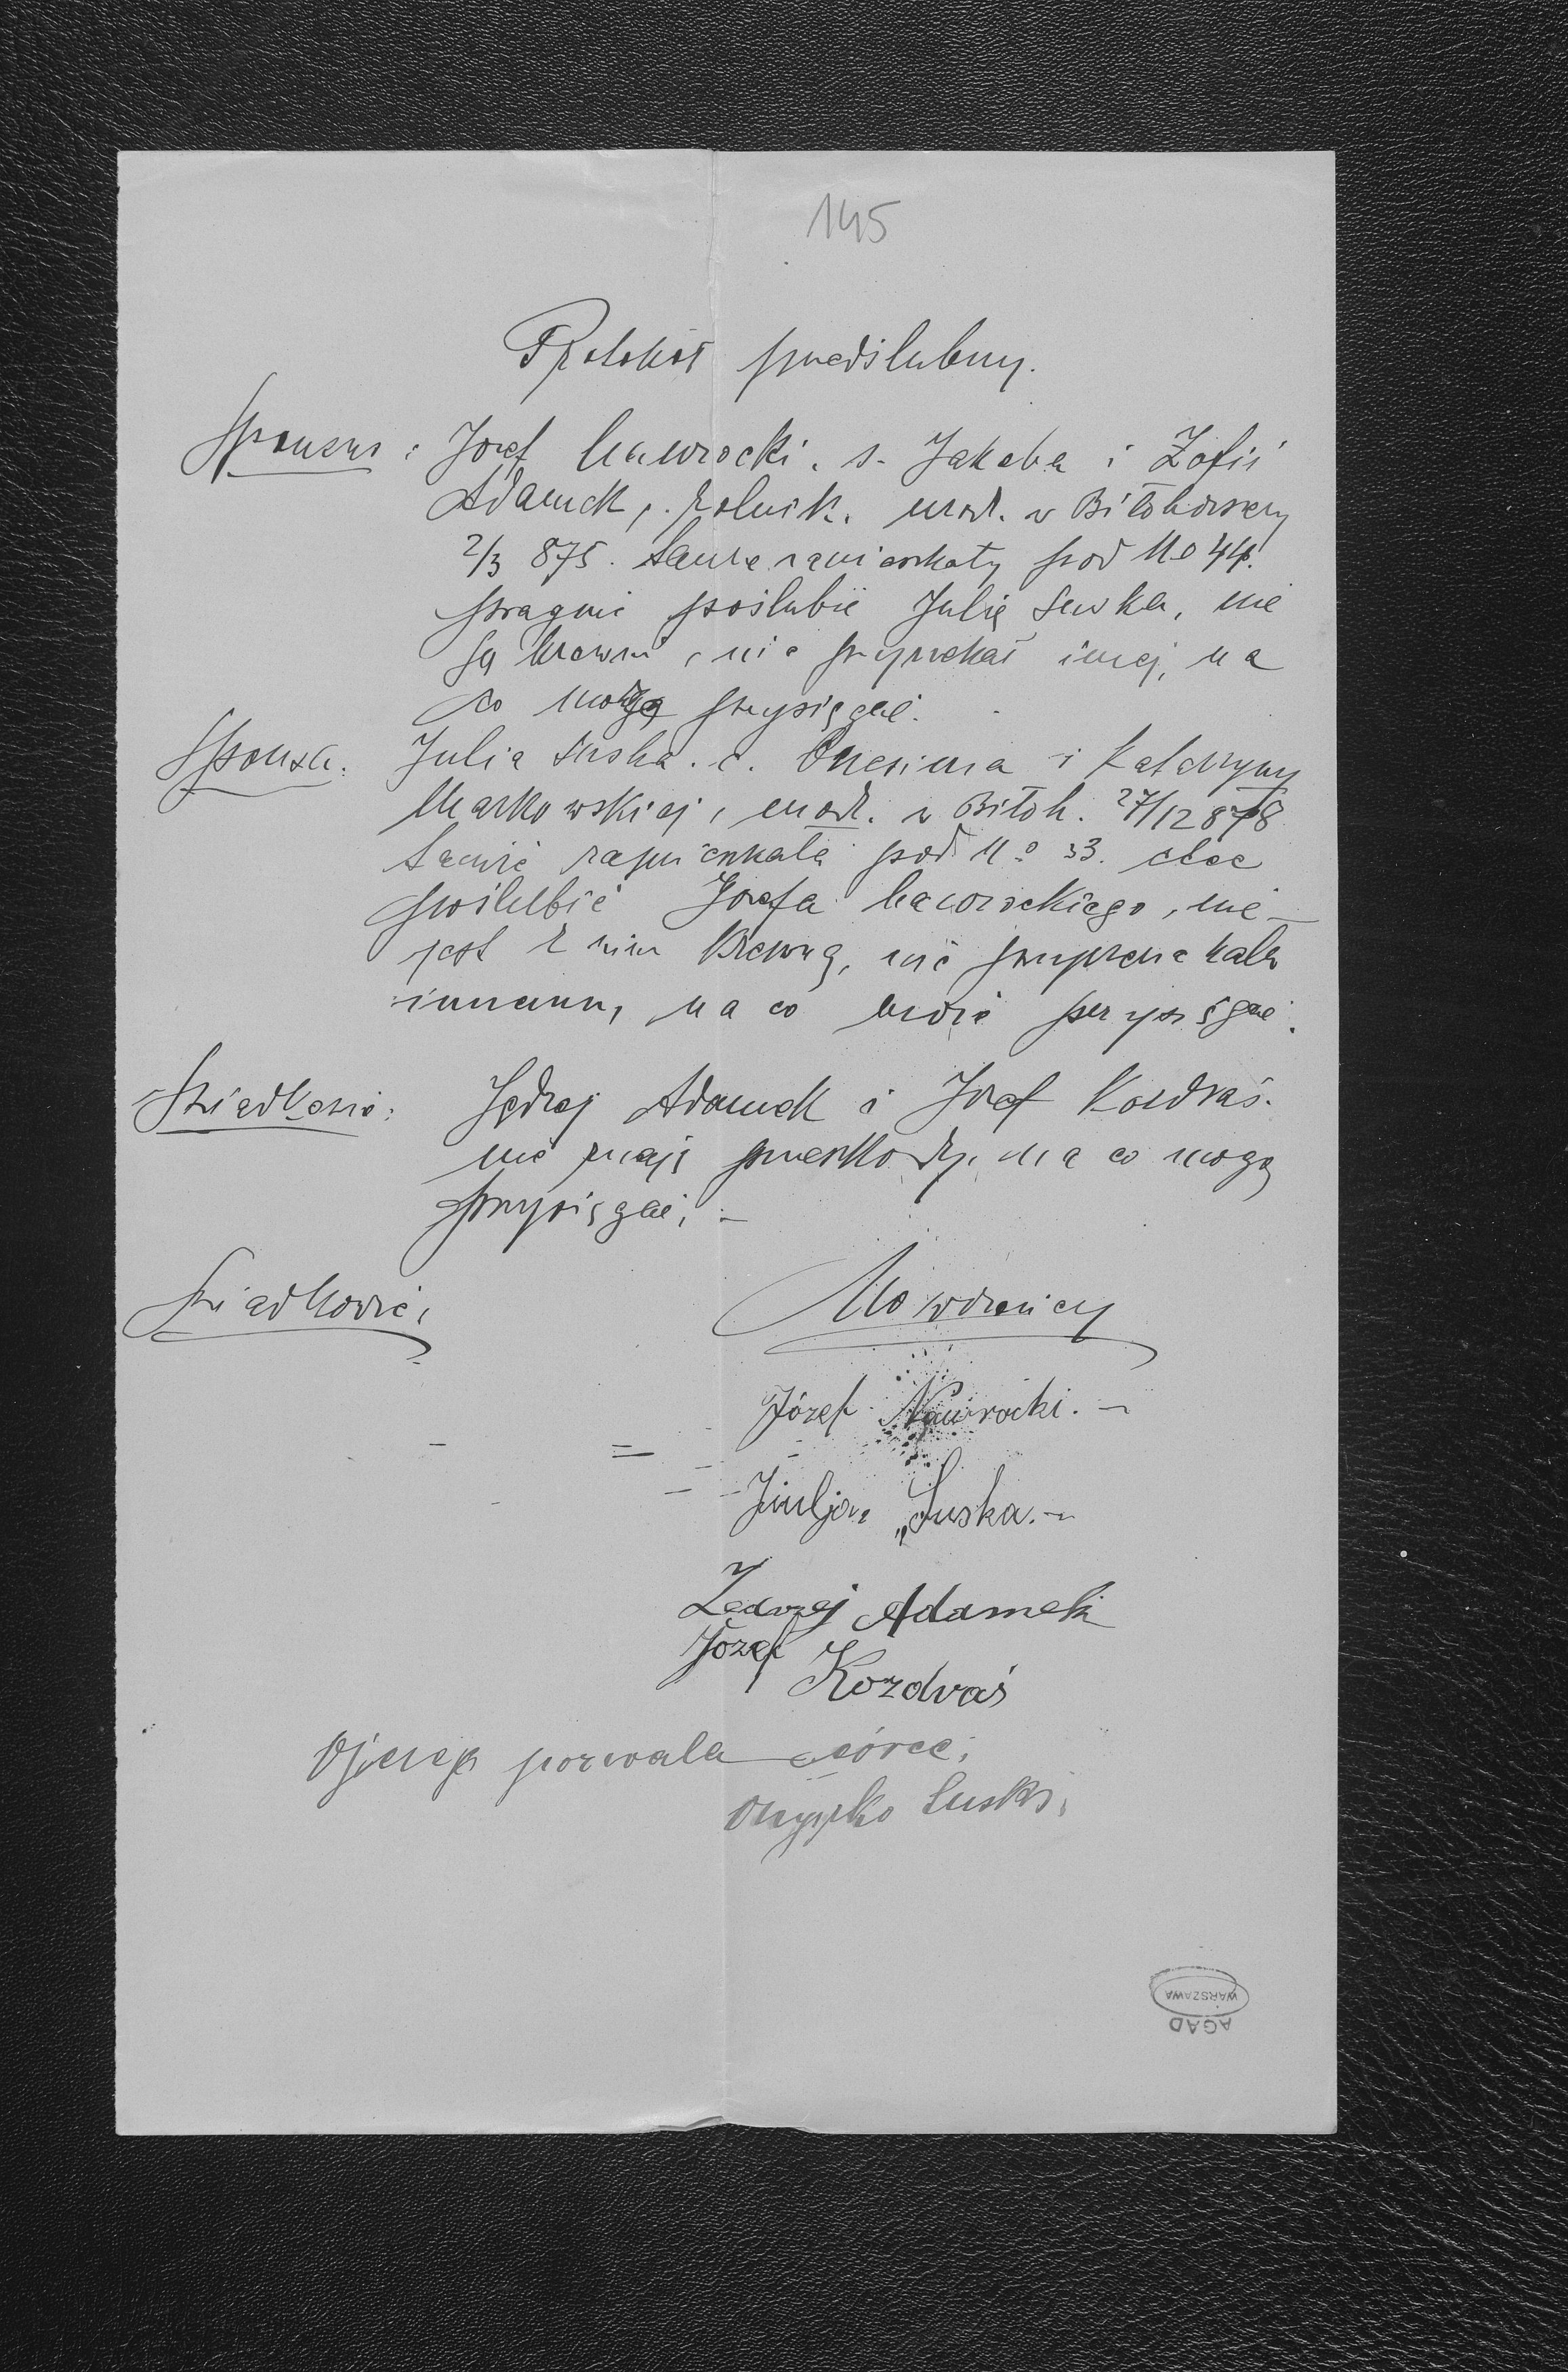 145
Protokół przedślubny.
Sponsus: Józef Nawrocki. s. Jakóba i Zofii
Adamek, rolnik. urod. w Biłohorszczy
2/3 875. tamże zamieszkały pod No 44.
pragnie poślubić Julię Suska, nie
są krewni, nie przyrzekał innej, na
co mogą przysięgać.
Sponsa: Julia Suska. c. Onesima i Katarzyny
Markowskiej, urod. w Biłoh. 27/12 878
tamże zamieszkała pod No 33. chce
poślubić Józefa Nawrockiego, nie
jest z nim krewną, nie przyrzekała
innemu, na co może przysięgać.
Świadkowie: Jędrzej Adamek i Józef Kozdraś.
nie znają przeszkody, na co mogą
przysięgać, -
Świadkowie, Nowożeńcy
Józef Nawrocki. -
Jiulja, „Suska. -
Jedrzej Adamek
Józef
Kozdraś
Ojciec pozwala córce,
Onyszko Suski.
WARSZAWA
AGAD